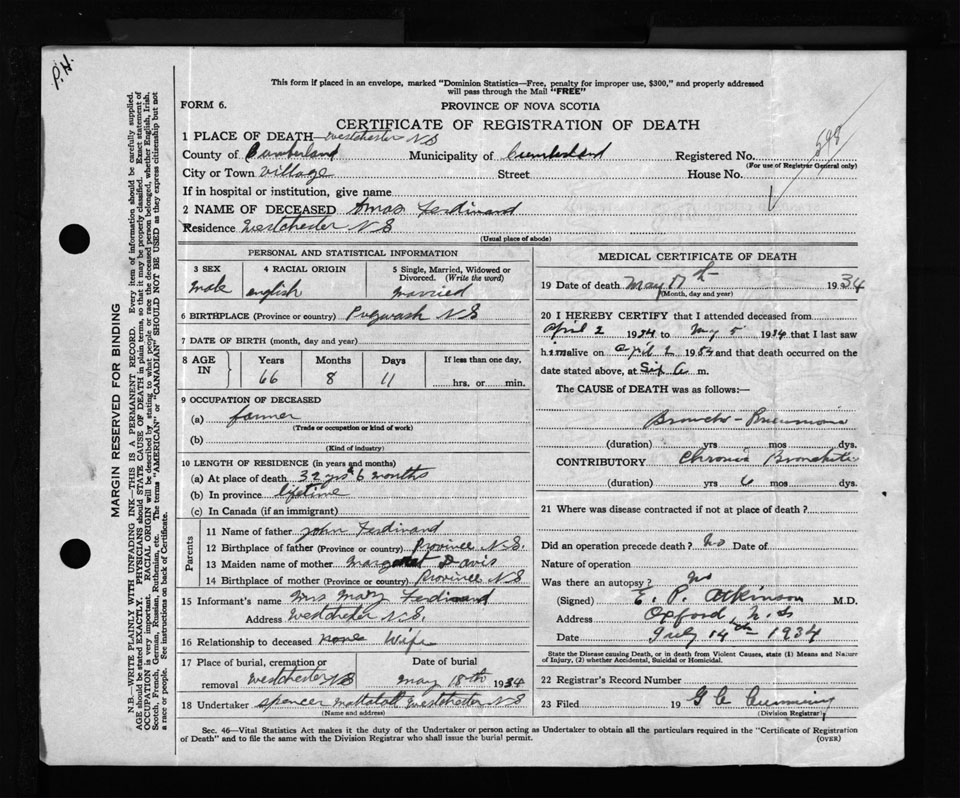 P.H.
This form if placed in an envelope, marked "Dominion Statistics—Free, penalty for improper use, $300," and properly addressed
will pass through the Mail "FREE"
FORM 6.
PROVINCE OF NOVA SCOTIA
CERTIFICATE OF REGISTRATION OF DEATH
1 PLACE OF DEATH— Westchester N S
County of Cumberland Municipality of Cumberland Registered No.
(For use of Registrar General only)
City or Town Village Street House No.
If in hospital or institution, give name
2 NAME OF DECEASED Amos Ferdinand
Residence Westchester N S
(Usual place of abode)
PERSONAL AND STATISTICAL INFORMATION
3 SEX 4 RACIAL ORIGIN 5 Single, Married, Widowed or Divorced. (Write the word)
Male english married
6 BIRTHPLACE (Province or country) Pugwash N S
7 DATE OF BIRTH (month, day and year)
8 AGE IN Years Months Days If less than one day,
66 8 11 hrs. or min.
9 OCCUPATION OF DECEASED
(a) farmer
(Trade or occupation or kind of work)
(b)
(Kind of industry)
10 LENGTH OF RESIDENCE (in years and months)
(a) At place of death 32 yrs 6 months
(b) In province lifetime
(c) In Canada (if an immigrant)
Parents
11 Name of father John Ferdinand
12 Birthplace of father (Province or country) Province N.S.
13 Maiden name of mother Margaret Davis
14 Birthplace of mother (Province or country) Province N S
15 Informant's name Mrs Mary Ferdinand
Address Westchester N.S.
16 Relationship to deceased none Wife
17 Place of burial, cremation or Date of burial
removal Westchester NS May 18th 1934
18 Undertaker Spencer Westchester N S
(Name and address)
MEDICAL CERTIFICATE OF DEATH
19 Date of death May 17th 1934
(Month, day and year)
20 I HEREBY CERTIFY that I attended deceased from
April 2 1934 to May 5 1934 that I last saw
him alive on April 2 1934 and that death occurred on the
date stated above, at Six a m.
The CAUSE of DEATH was as follows:—
Broncho-Pneumonia
(duration) yrs mos dys.
CONTRIBUTORY Chronic Bronchitis
(duration) yrs 6 mos dys.
21 Where was disease contracted if not at place of death?
Did an operation precede death? No Date of
Nature of operation
Was there an autopsy? No
(Signed) E. P. Atkinson M.D.
Address Oxford, N.S
Date July 14th 1934
State the Disease causing Death, or in death from Violent Causes, state (1) Means and Nature
of Injury, (2) whether Accidental, Suicidal or Homicidal.
22 Registrar's Record Number
23 Filed 19 G C Cumming
(Division Registrar)
Sec. 46—Vital Statistics Act makes it the duty of the Undertaker or person acting as Undertaker to obtain all the particulars required in the "Certificate of Registration
of Death" and to file the same with the Division Registrar who shall issue the burial permit.
(OVER)
MARGIN RESERVED FOR BINDING
N.B.—WRITE PLAINLY WITH UNFADING INK—THIS IS A PERMANENT RECORD. Every item of information should be carefully supplied.
AGE should be stated EXACTLY. PHYSICIANS should STATE CAUSE OF DEATH in plain terms, so that it may be properly classified. Exact statement of
OCCUPATION is very important. RACIAL ORIGIN will be described by stating to what people or race the deceased person belonged, whether English, Irish,
Scotch, French, German, Russian, Ruthenian, etc. The terms "AMERICAN" or "CANADIAN" SHOULD NOT BE USED as they express citizenship but not
a race or people. See instructions on back of Certificate.